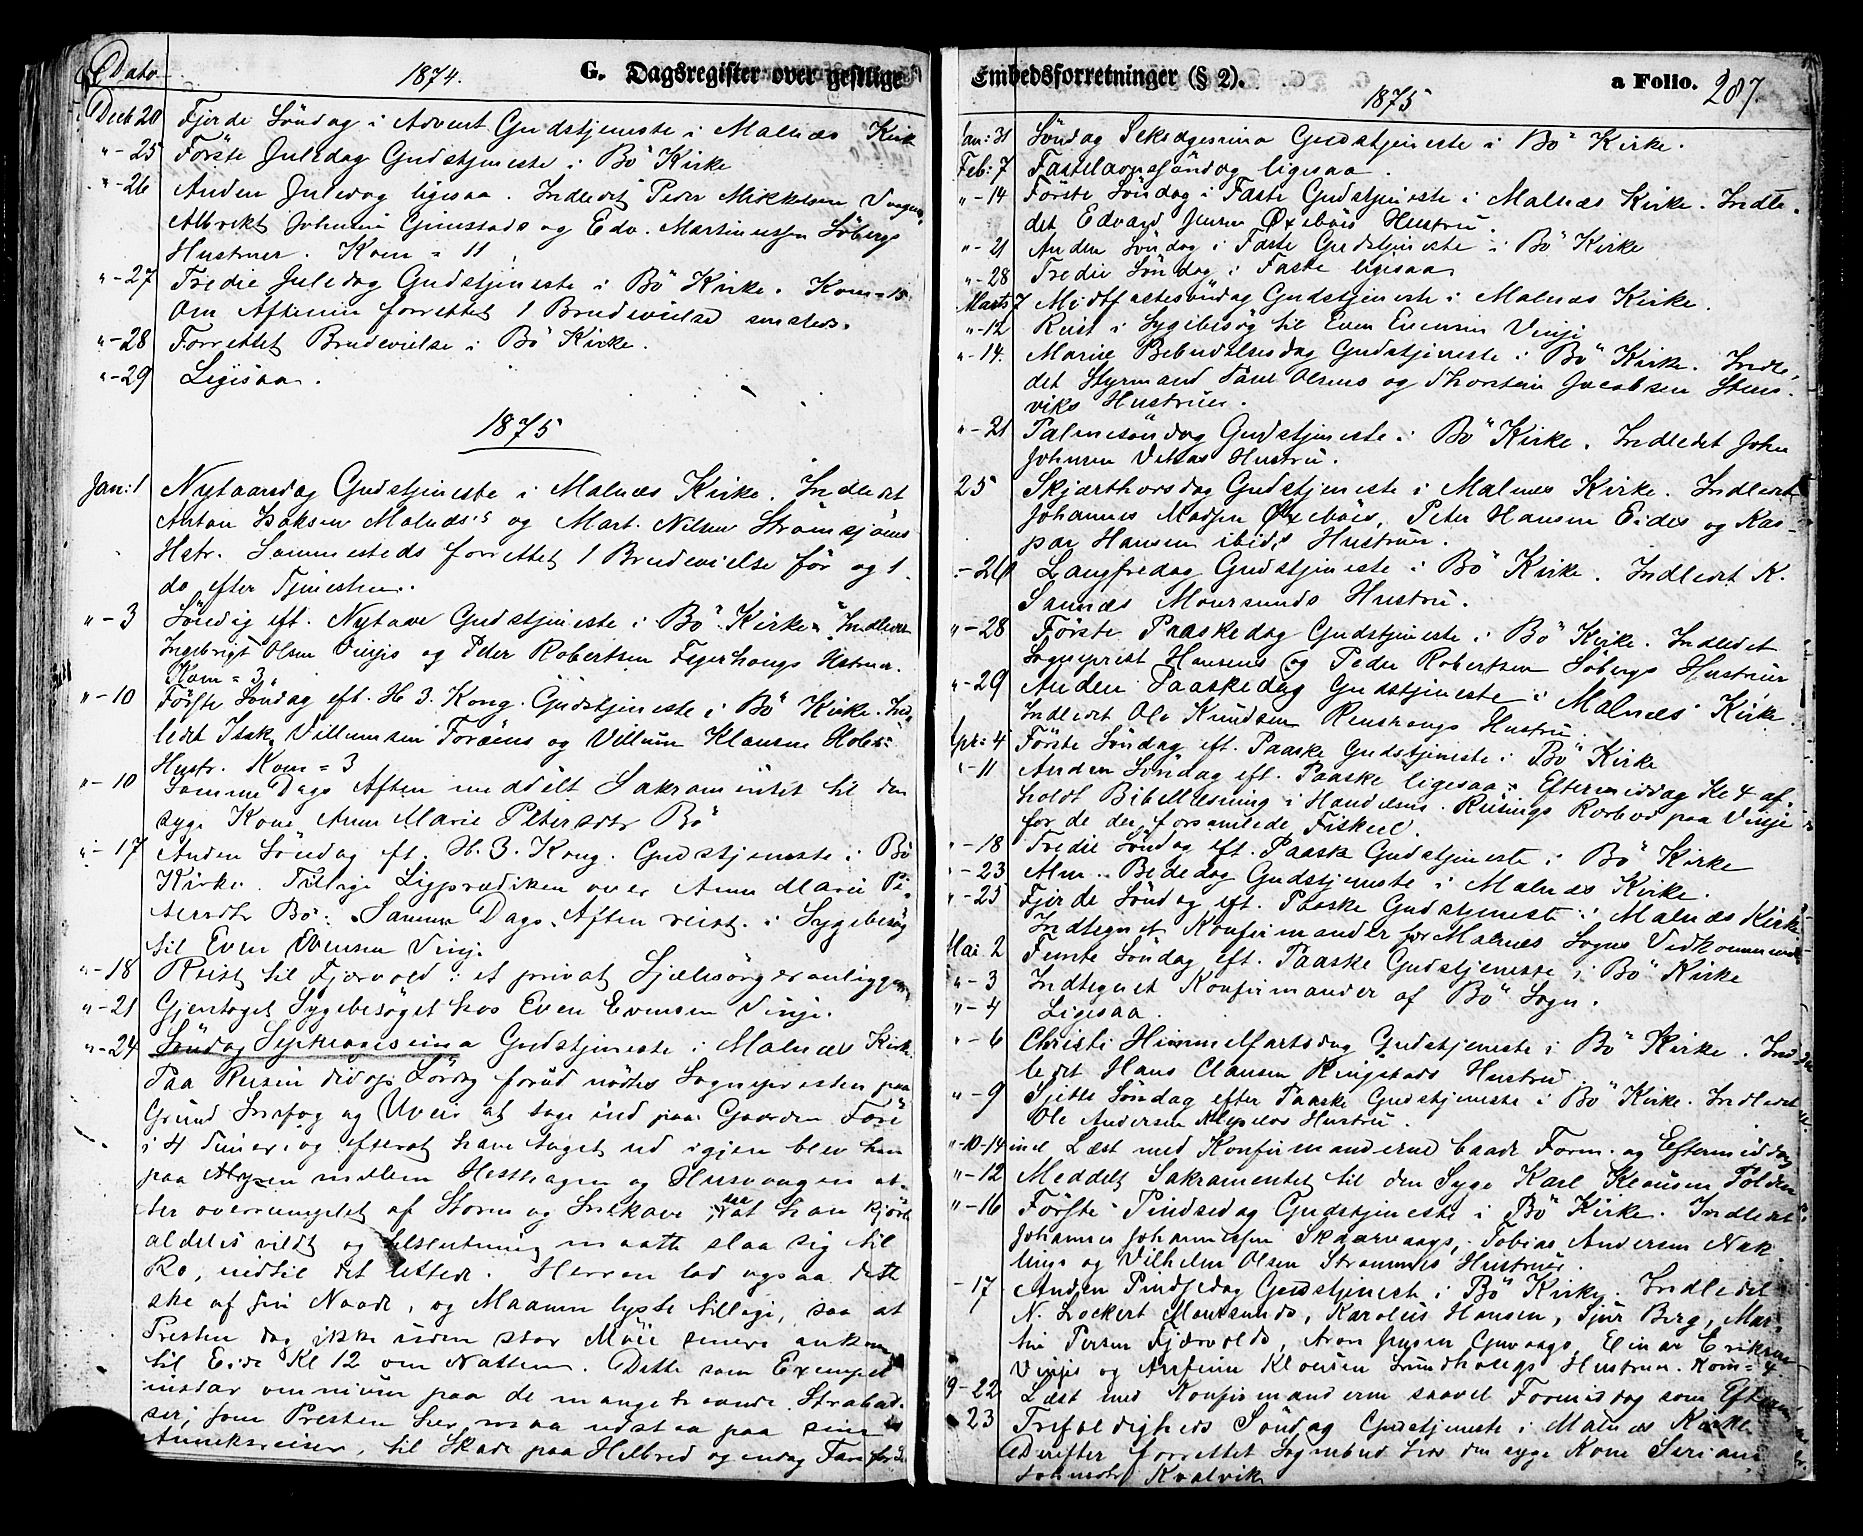 Dato
1874.
G. Dagsregister over geistlige
Decb 20 Fjerde Söndag i Advent Gudstjeneste i Malnæs Kirk
"-25 Förste Juledag Gudstjeneste i Bö Kirke
"-26 Anden Juledag ligesaa. Indledet Peder Mikkelsen
Albrekt Johnsen Gimstads og Edv. Martinussen Söbergs
Hustruer. Kom = 11
"-27 Tredie Juledag Gudstjeneste i Bö Kirke. Kom = 15
Om Aftenen forrettet 1 Brudevielse smsteds.
"-28 Forrettet Brudevielse i Bö Kirke.
"-29 Ligesaa.
1875
Jan: 1 Nytaarsdag Gudstjeneste i Malnæs Kirke. Indledet
Anton Isaksen Malnæs's og Mart. Nilsen Strömsjöens
Hstr. Sammesteds forrettet 1 Brudevielse för og 1
do efter Tjenesten.
"-3 Söndag eft. Nytaar Gudstjeneste i Bö Kirke. Indledet
Ingebrigt Olsen Vinjes og Peder Robertsen Fegerhaugs Hstruer.
Kom = 3
"-10 Förste Söndag eft. H. 3. Kong. Gudstjeneste i Bö Kirke. Ind
ledet Isak Villumsen Foröens og Villum Klausens
Hustr. Kom = 3
"-10 Samme Dags Aften meddelt Sakramentet til den
syge Kone Anne Marie Petersdtr Bö
"-17 Anden Söndag eft. H. 3. Kong. Gudstjeneste i Bö
Kirke. Tillige Ligprædiken over Anne Marie Pe-
tersdtr Bö. Samme Dags Aften reist i Sygebesög
til Even Evensen Vinje.
"-18 Reist til Fjærvold i et privat Sjælesörgeranliggen
"-21 Gjentaget Sygebesöget hos Even Evensen Vinje.
"-24 Söndag Septuagesima Gudstjeneste i Malnæs Kirke
Paa Reisen did ogs Lördag forud nödtes Sognepresten paa
Grund Snefog og Uveir at tage ind paa Gaarden Före
i 4 Timer, og efterat have taget ud igjen blev han
paa Myren mellem Hesthagen og Husvaagen at-
ter overrumplet af Storm og Snekave, saa at han kjörte
aldeles vildt og tilslutning maatte slaa sig til
Ro, indtil det lettede. Herren lod ogsaa dette
ske af sin Naade, og Maanen lyste tillige, saa at
Presten dog ikke uden stor Möie senere ankom
til Eide Kl 12 om Natten. Dette som Exempel
instar omnium paa de mangehaande Strabad-
ser, som Presten her maa udstaa paa sine
Annexreiser, til Skade paa Helbred og endog Fare for
Embedsforretninger (§ 2).
1875
a Folio. 287.
Jan: 31 Söndag Seksagesima Gudstjeneste i Bö Kirke.
Feb: 7 Fastelavnssöndag ligesaa.
"-14 Förste Söndag i Faste Gudstjeneste i Malnæs Kirke. Indle-
det Edvard Jensen Øxebös Hustru.
"-21 Anden Söndag i Faste Gudstjeneste i Bö Kirke
"-28 Tredie Söndag i Faste ligesaa
Marts 7 Midtfastesöndag Gudstjeneste i Malnæs Kirke.
"-12 Reist i Sygebesög til Even Evensen Vinje
"-14. Mariæ Bebudelsesdag Gudstjeneste i Bö Kirke. Indle-
det Styrmand Paul Olsens og Thorstein Jacobsen Steens-
viks Hustruer.
"-21 Palmesöndag Gudstjeneste i Bö Kirke. Indledet John
Johnsen Hustru.
25 Skjærthorsdag Gudstjeneste i Malnæs Kirke. Indledet
Johannes Madsen Øxebös, Peter Hansen Eides og Kas-
par Hansen ibid's Hustruer.
"-26 Langfredag Gudstjeneste i Bö Kirke. Indledet K.
Sannæs Moursunds Hustru.
"-28 Förste Paaskedag Gudstjeneste i Bö Kirke. Indledet
Sogneprest Hansens og Peder Robertsen Söbergs Hustruer
"-29 Anden Paaskedag Gudstjeneste i Malnæs Kirke
Indledet Ole Knudsen Renshaugs Hustru.
Apr: 4 Förste Söndag eft. Paaske Gudstjeneste i Bö Kirke
"-11 Anden Söndag eft. Paaske ligesaa. Eftermiddag Kl 4 af-
holdt Bibellæsning i Handelsm. Reinings Rorbod paa Vinje
for de der forsamlede Fiskere.
-18 Tredie Söndag eft. Paaske Gudstjeneste i Bö Kirke
-23 Alm. Bededag Gudstjeneste i Malnæs Kirke.
"-25 Fjerde Söndag eft. Paaske Gudstjeneste i Malnæs Kirke
Indtegnet Konfirmander for Malnæs Sogns Vedkommende
Mai 2 Femte Söndag eft. Paaske Gudstjeneste i Bö Kirke
"-3 Indtegnet Konfirmander af Bö Sogn.
"-4 Ligesaa
"-6 Christi Himmelfartsdag Gudstjeneste i Bö Kirke. Ind-
ledet Hans Clausen Ringstads Hustru.
"-9 Sjette Söndag efter Paaske Gudstjeneste i Bö Kirke. Indledet
Ole Andersen Hustru.
"-10-14 incl Læst med Konfirmanderne baade Form. og Eftermiddag
"-12 Meddelt Sakramentet til den Syge Karl Klausen
"-16 Förste Pindsedag Gudstjeneste i Bö Kirke. Indledet
Johannes Johannesen Skaarvaags, Tobias Andersen Nyk-
lings og Vilhelm Olsen Straumnes Hustruer.
-17 Anden Pindsedag Gudstjeneste i Bö Kirke. Indledet
N. Lockert Moursunds, Karolius Hansen, Sjur Berg, Mar-
tin Persen Fjærvolds, Aron Jensen Guvaags, Einar Eriksen
Vinjes og Arnfinn Klausen Sundhaugs Hustruer. Kom = 4.
19-22 Læst med Konfirmanderne saavel Formiddag som Efterm
23 Trefoldigheds Söndag Gudstjeneste i Malnæs Kirke
Derefter forrettet Sognebud hos den syge Kone Seriane
Johnsdtr Kvalvik